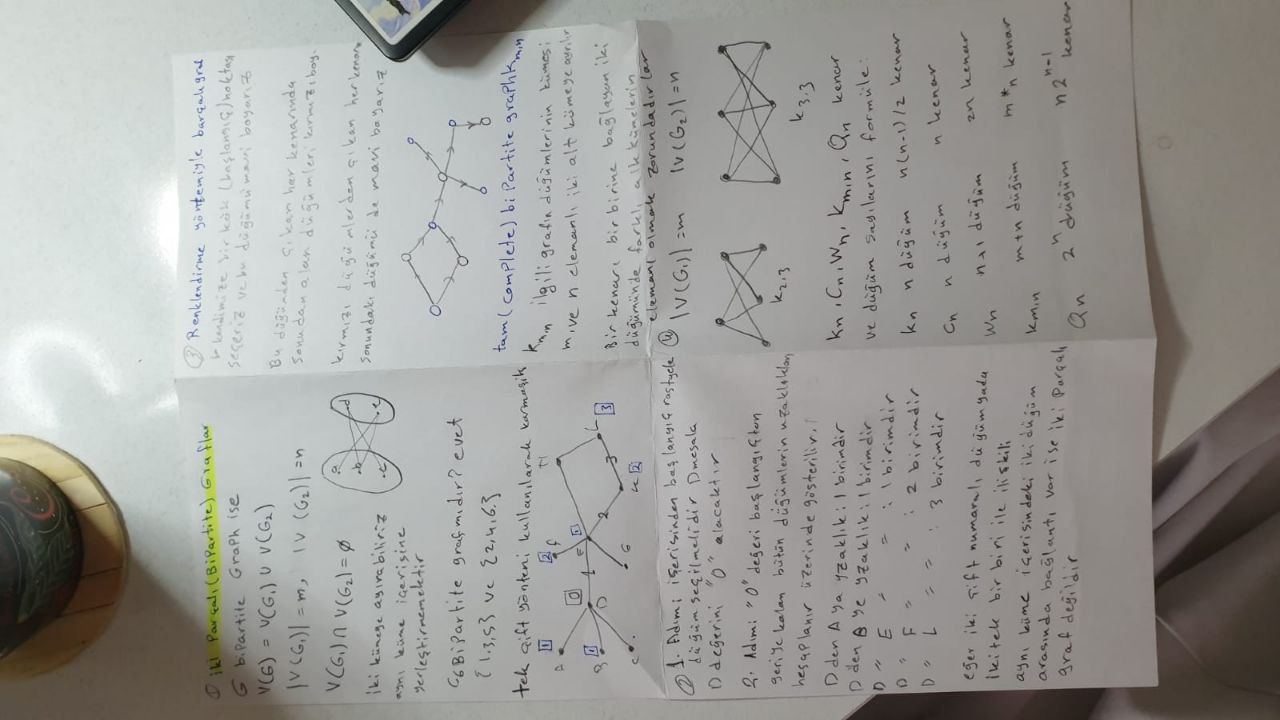 ① iki Parçalı (BiPartite) Graflar
G bipartite Graph ise
V(G) = V(G₁) ∪ V(G₂)
|V(G₁)| = m, |V(G₂)| = n
V(G₁) ∩ V(G₂) = ∅
iki kümeye ayırabiliriz
aynı küme içerisine
yerleştirmemektir
a
b
c
d
e
C₆ BiPartite graf mıdır? evet
{1,3,5} ve {2,4,6}
tek çift yöntemi kullanılarak karmaşık
A
1
B
1
C
D
0
1
E
1
F
2
G
H
2
K
2
3
L
3
② 1. Adımı içerisinden başlangıç rastgele
düğüm seçilmelidir D mesala
D değerini "0" alacaktır
2. Adımı "0" değeri başlangıçtan
geriye kalan bütün düğümlerin uzaklıkları
hesaplanır üzerinde gösterilir.
D den A ya uzaklık: 1 birimdir
D den B ye uzaklık: 1 birimdir
D " E = : 1 birimdir
D " F = = : 2 birimdir
D " L = = : 3 birimdir
eğer iki çift numaralı düğüm yada
iki tek bir biri ile ilişkili
aynı küme içerisindeki iki düğüm
arasında bağlantı var ise iki parçalı
graf değildir
③ Renklendirme yöntemiyle parçalı graf
kendimize bir kök (başlangıç) noktası
seçeriz ve bu düğümü mavi boyarız
Bu düğümden çıkan her kenarında
sonundan alan düğümleri kırmızı boy.
kırmızı düğümlerden çıkan her kenarı
sonundaki düğümü de mavi boyarız
tam (complete) biPartite graph Kmın
Km,n ilgili grafın düğümlerinin kümesi
m ve n elemanlı iki alt kümeye ayrılır
Bir kenarı birbirine bağlayan iki
düğümünde farklı alt kümelerin
elemanı olmak zorundadırlar
④ |V(G₁)| = m |V(G₂)| = n
K2,3
K3,3
Kn, Cn, Wn, Kmın, Qn kenar
ve düğüm sayılarını formüle:
Kn n düğüm n(n-1)/2 kenar
Cn n düğüm n kenar
Wn n+1 düğüm 2n kenar
Kmın m+n düğüm m*n kenar
Qn 2ⁿ düğüm n2ⁿ⁻¹ kenar